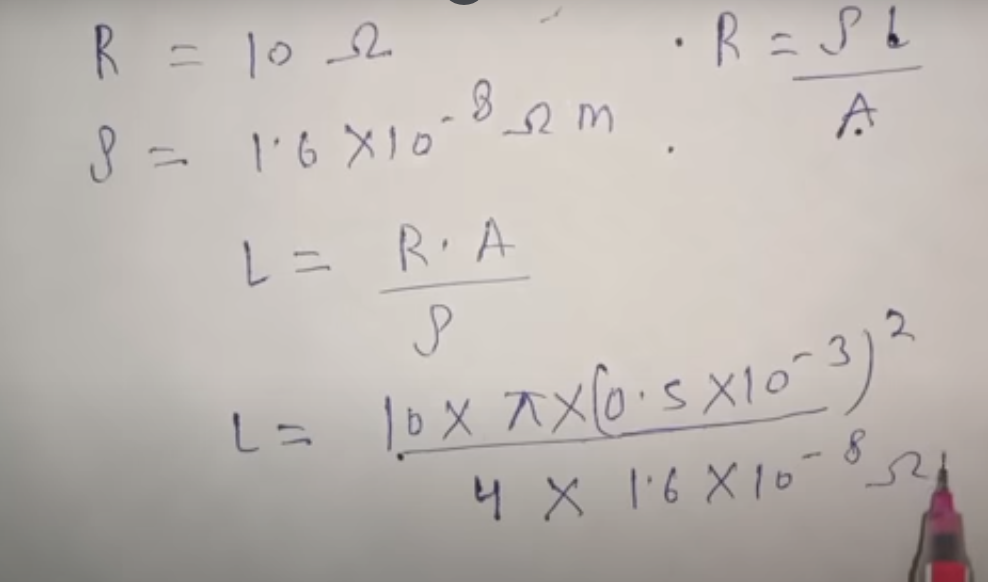 R = 10 Ω
R = ρL / A
ρ = 1.6 × 10⁻⁸ Ω m
L = R · A / ρ
L = 10 × π × (0.5 × 10⁻³)² / 4 × 1.6 × 10⁻⁸ Ω